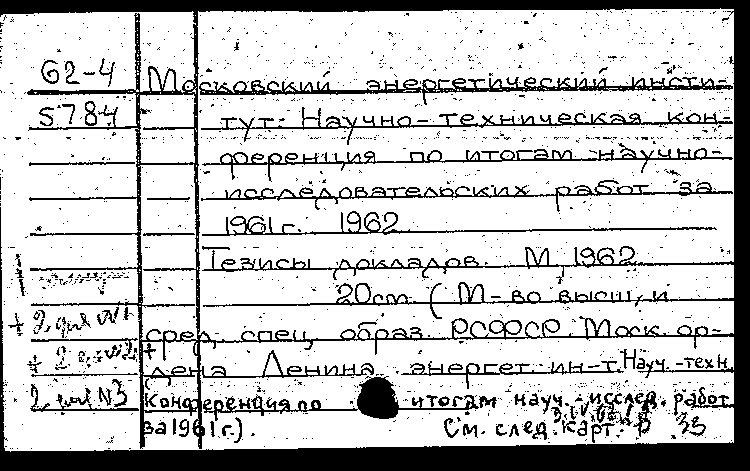 62-4 Московский энергетический инсти-
5784 тут. Научно-техническая кон-
ференция по итогам научно-
исследовательских работ за
1961г. 1962
Тезисы докладов. М, 1962
20см. (М-во высш, и
+ 2 для №1 сред, спец. образ. РСФСР. Моск. ор-
+ 2 дена Ленина энергет. ин-т. Науч.-техн.
2 №3 Конференция по итогам науч.-исслед. работ
за 1961г.). См. след. карт. В 33